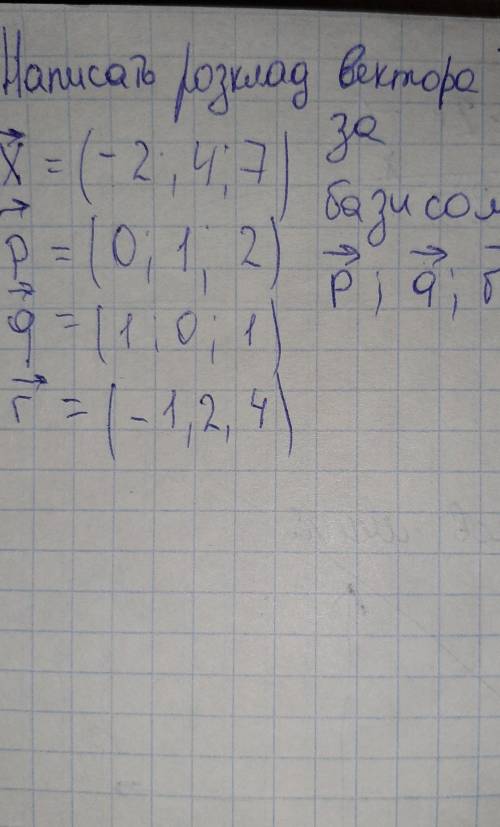 Написать розклад вектора
X = (-2; 4; 7) за
базисом
p = (0; 1; 2) p; q; r
q = (1; 0; 1)
r = (-1, 2, 4)